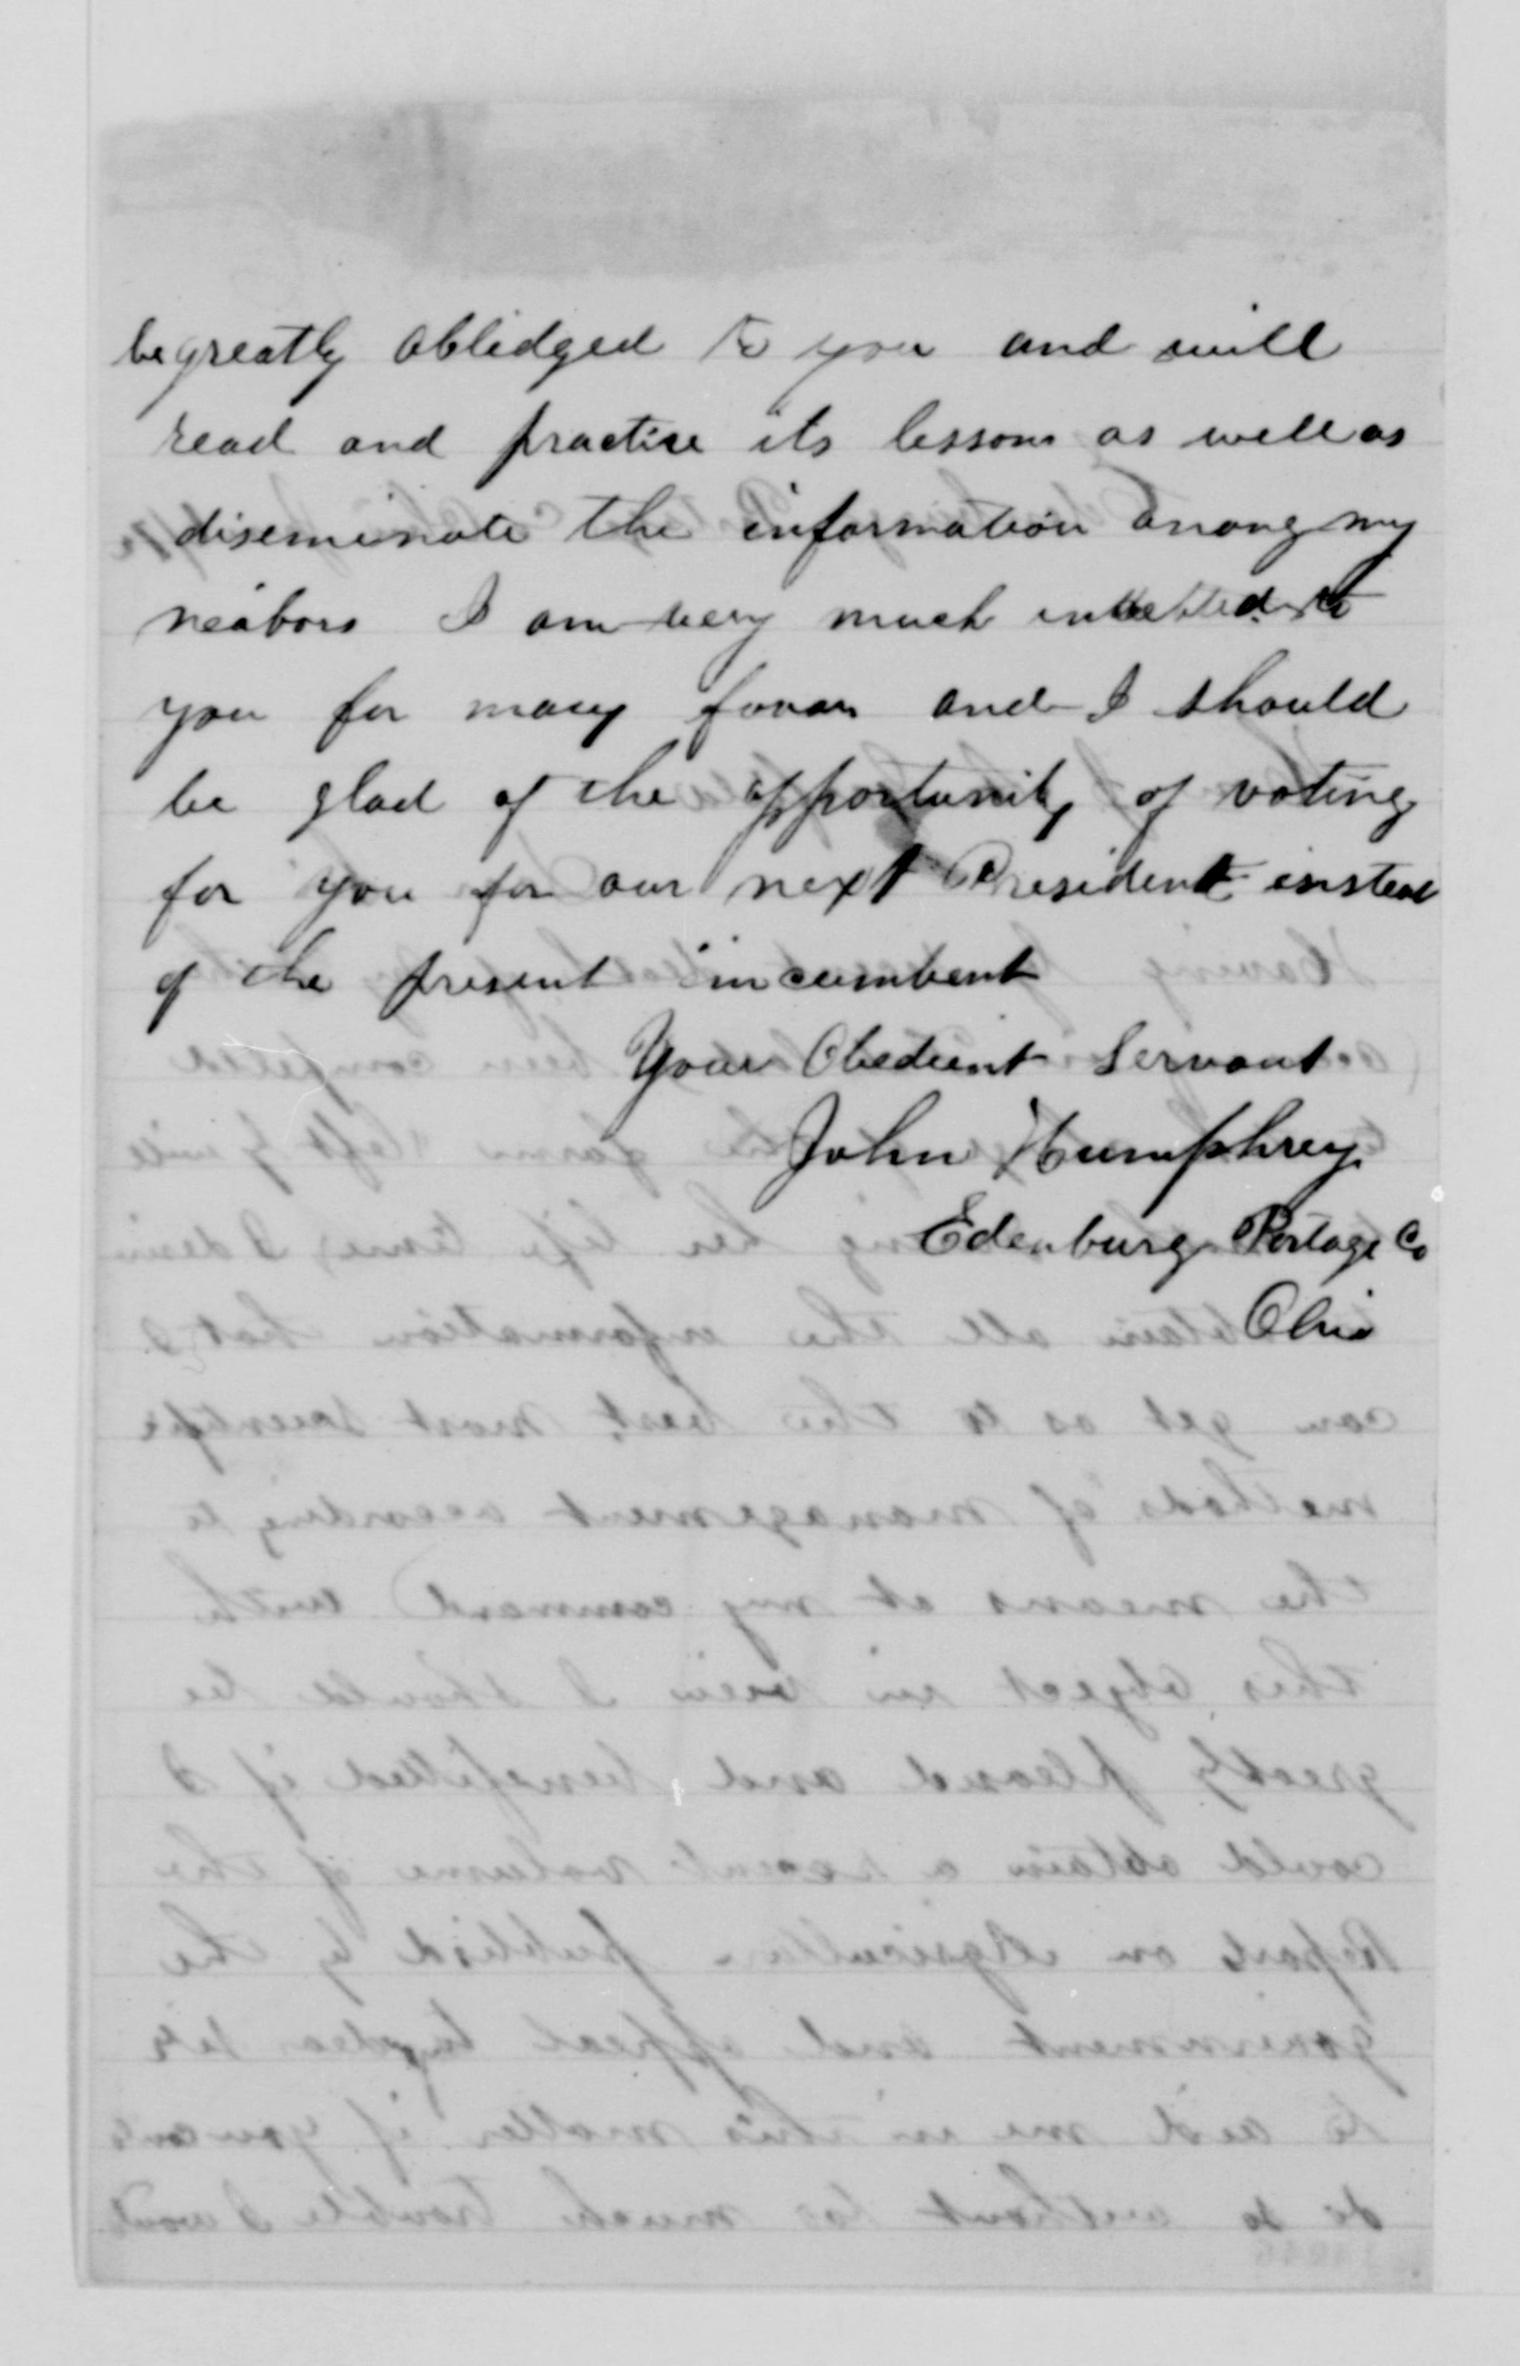 be greatly oblidged to you and will
read and practise its lessons as well as
diseminate the information among my
neabors I am very much indebted to
you for many favors and I should
be glad of the opportunity of voting
for you for our next President instead
of the present incumbent
Your Obedient Servant
John Humphrey
Edenburg Portage Co
Ohio